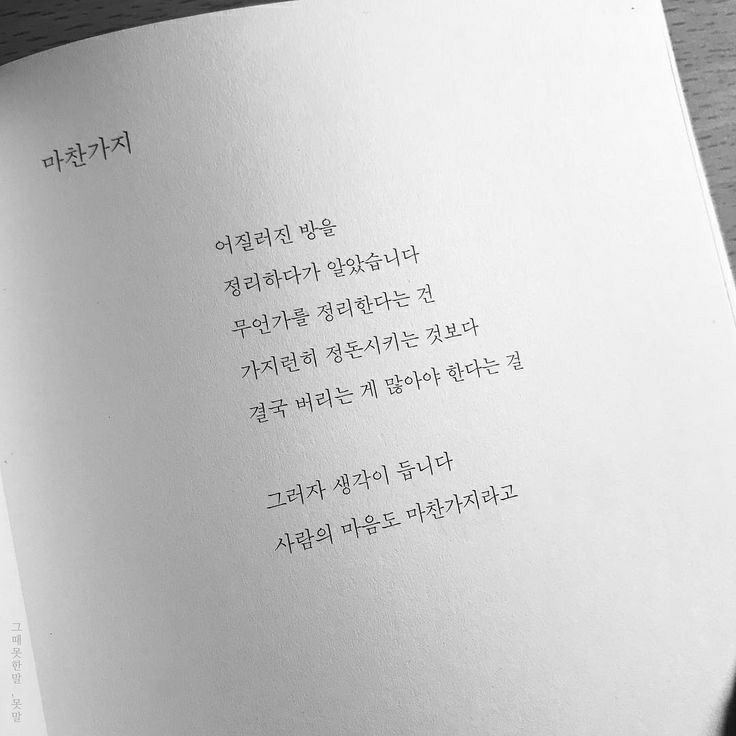 마찬가지
어질러진 방을
정리하다가 알았습니다
무언가를 정리한다는 건
가지런히 정돈시키는 것보다
결국 버리는 게 많아야 한다는 걸
그러자 생각이 듭니다
사람의 마음도 마찬가지라고
그때못한말,못말